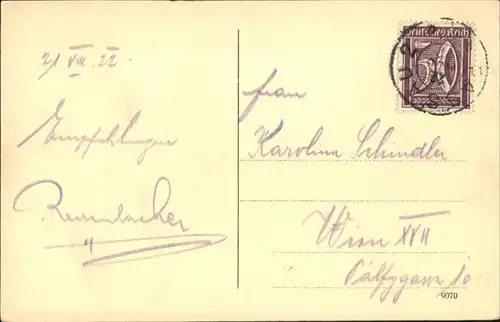 21 VIII. 22.
Empfehlungen
Deutsches Reich
50
Frau
Karolina Schindler
Wien XVII
Pálffygasse 10
9070